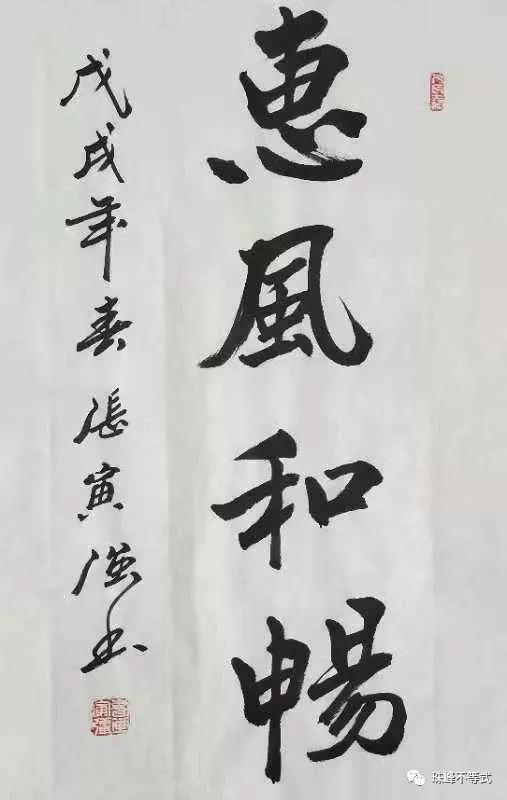 惠風和暢
戊戌年春張寅强书
珠峰不等式